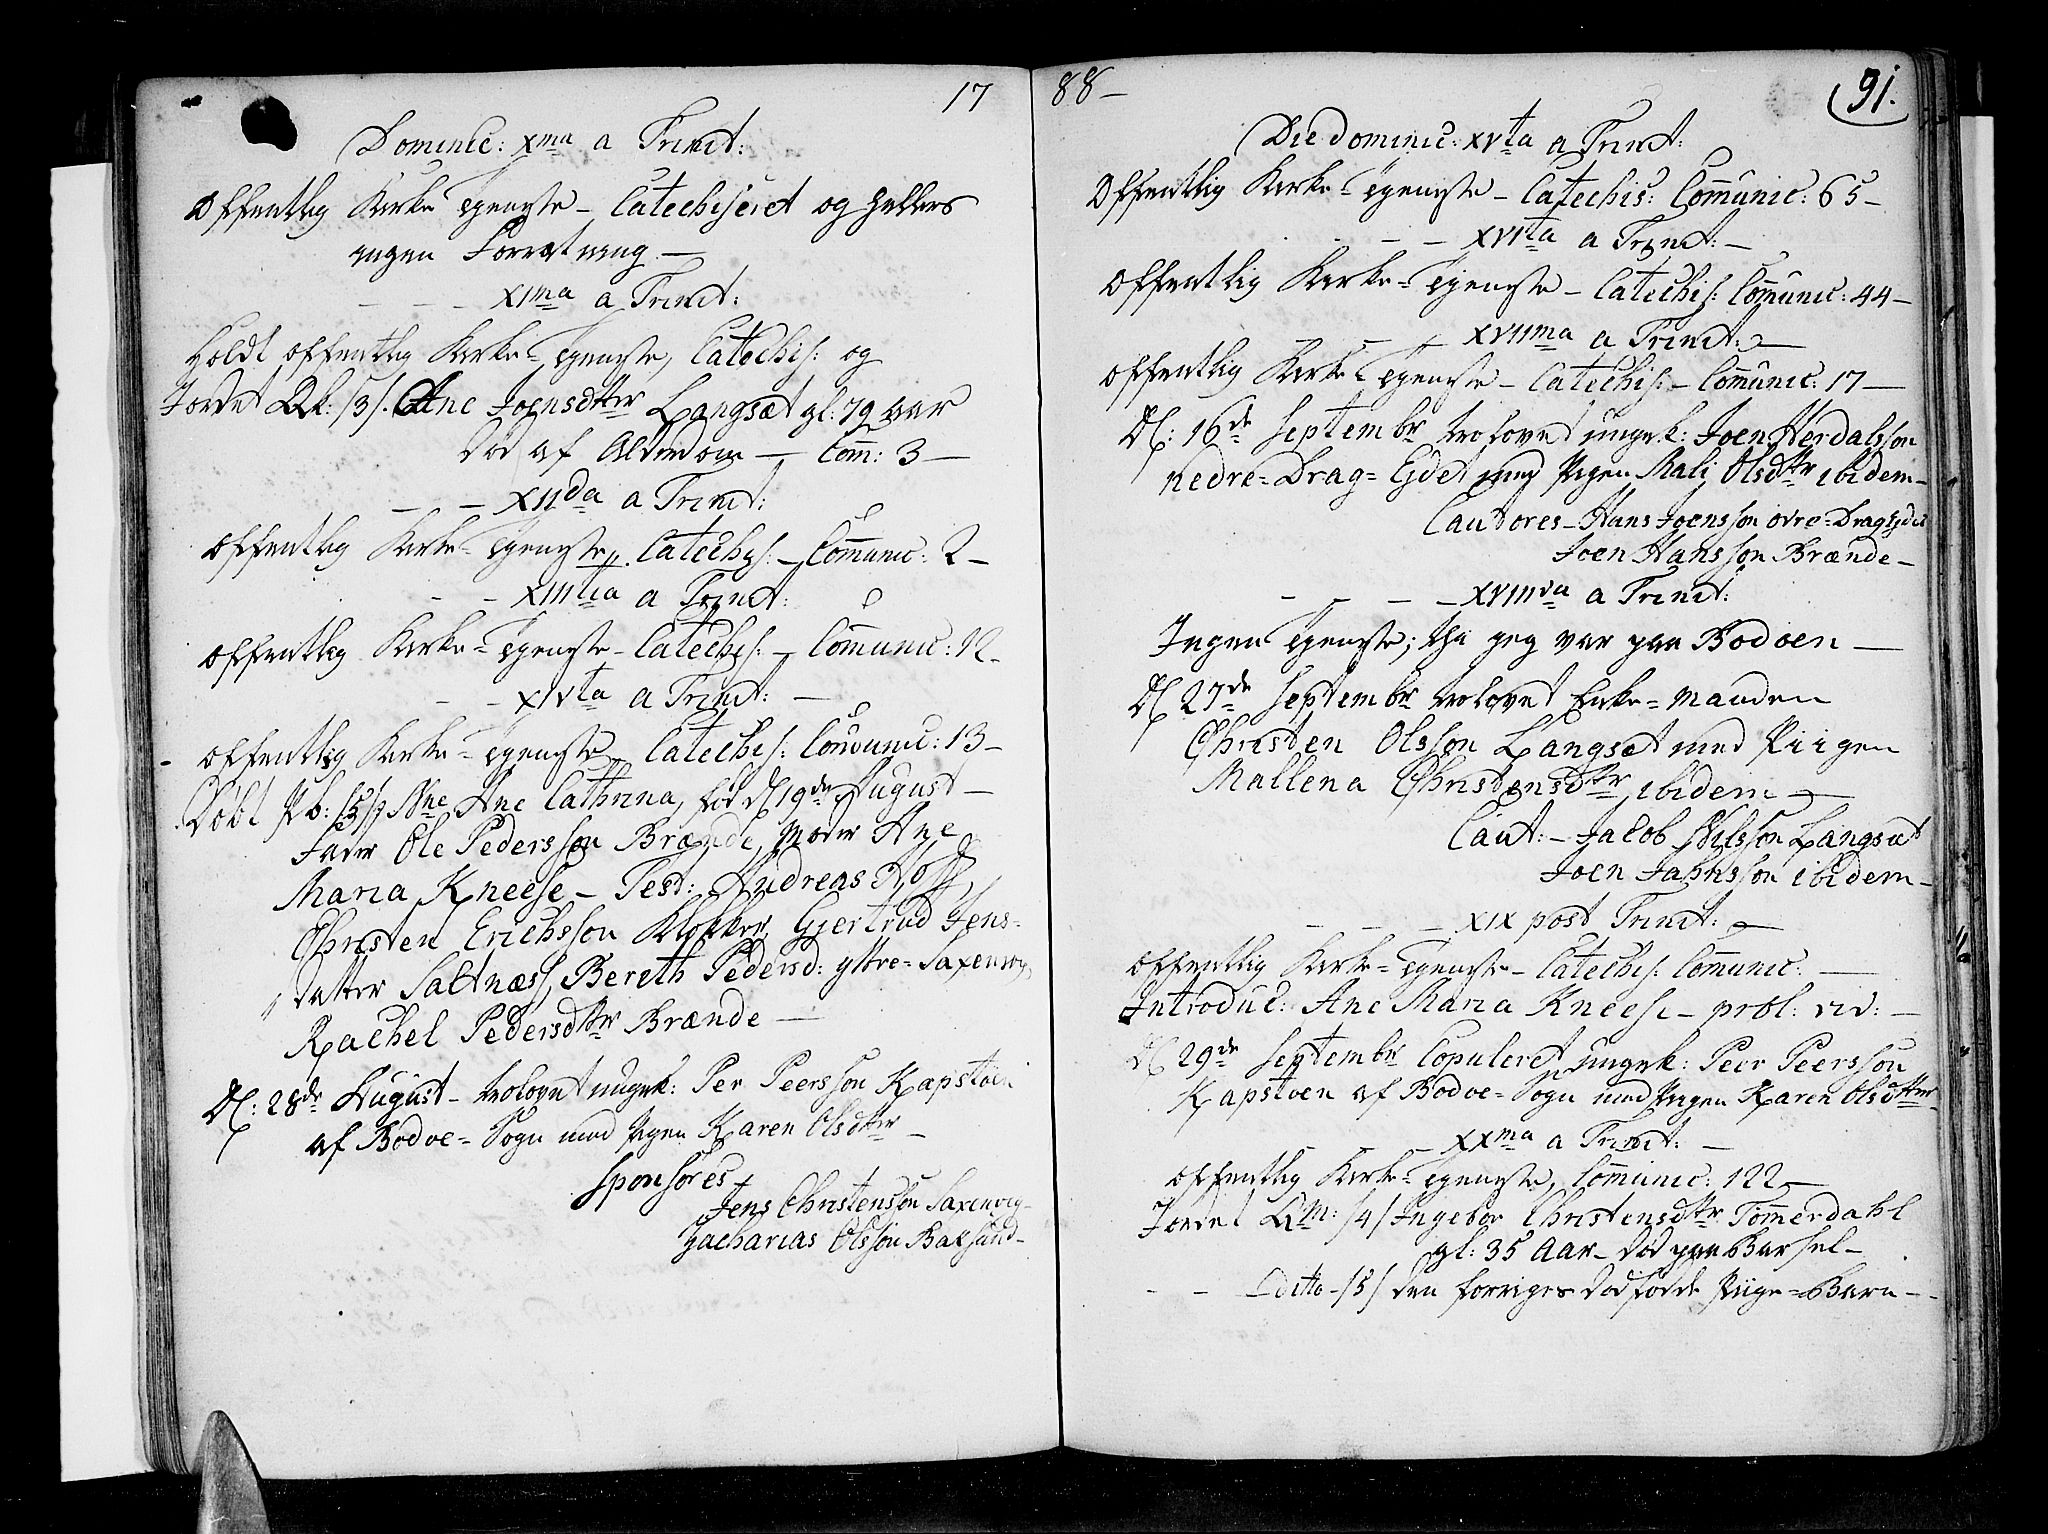 17
Dominic: Xma a Trinit:
Offentlig Kirke Tieneste – Catechiseret og hellers
ingen Forrætning –
– – – XIma a Trinit:
Holdt offentlig Kirke-Tieneste, Catechis: og
Jordet Qk: /3/. Ane Joensdtter Langsæt gl: 79 aar
død af Alderdom – Com: 3 –
– – XIIda a Trinit:
Offentlig Kirke-Tieneste, Catechis: – Communic: 2 –
– – XIIItia a Trinit:
Offentlig Kirke-Tieneste – Catechis: – Communic: 12 –
– – XIVta a Trinit: –
Offentlig Kirke-Tieneste – Catechis: Communic: 13 –
Døbt Pb: /5/ Nne Ane Cathrina, fød d 19de August –
Fader Ole Pedersson Brænde, Moder Ane
Maria Kneese – Test: Andreas Hoff,
Christen Erichsson Klokker, Gjertrud Jens-
datter Saltnæss, Bereth Pedersd: yttre-Saxenvig
Rachel Pedersdtter Brænde –
D: 28de August – trolovet ungek: Per Peersson Kapstøen
af Bodøe-Sogn med Pigen Karen Olsdtter –
Sponsores
Jens Christensson Saxenvig –
Zacharias Olsson Baksund –
88 –
91.
Die dominic: XVta a Trinit:
Offentlig Kirke-Tieneste – Catechis: Communic: 65 –
– – XVIta a Trinit: –
Offentlig Kirke-Tieneste – Catechis: Communic: 44 –
– – XVIIma a Trinit: –
Offentlig Kirke-Tieneste – Catechis: – Communic: 17 –
D: 16de Septembr trolovet ungek: Joen Herdalsson
nedre-Drag-Ejdet med Pigen Mali Olsdtr ibidem –
Cautores – Hans Joensson øvre-Dragejdet
Joen Hansson Brænde –
– – – – XVIIIva a Trinit:
Ingen Tieneste; thi jeg var paa Bodøen –
D 27de Septembr trolovet Enke-Manden
Christen Olsson Langsæt med Piigen
Mallena Christensdtr ibidem –
Caut: – Jacob Nilsson Langsæt
Joen Jahnsson ibidem –
– – – XIX post Trinit: –
Offentlig Kirke-Tieneste – Catechis: Communic: –
Introduc: Ane Maria Kneese – prol: viv: –
D 29de Septembr Copuleret ungek: Peer Peersson
Kapstøen af Bodøe-Sogn med Pigen Karen Olsdtter –
– – – XXma a Trinit: –
Offentlig Kirke-Tieneste, Communic: 122 –
Jordet Qm: /4/ Ingebor Christensdtr Tømmerdahl
gl: 35 Aar – død paa Barsel –
– – – Ditto – /5/ den forriges dødfødde Piige-Barn –